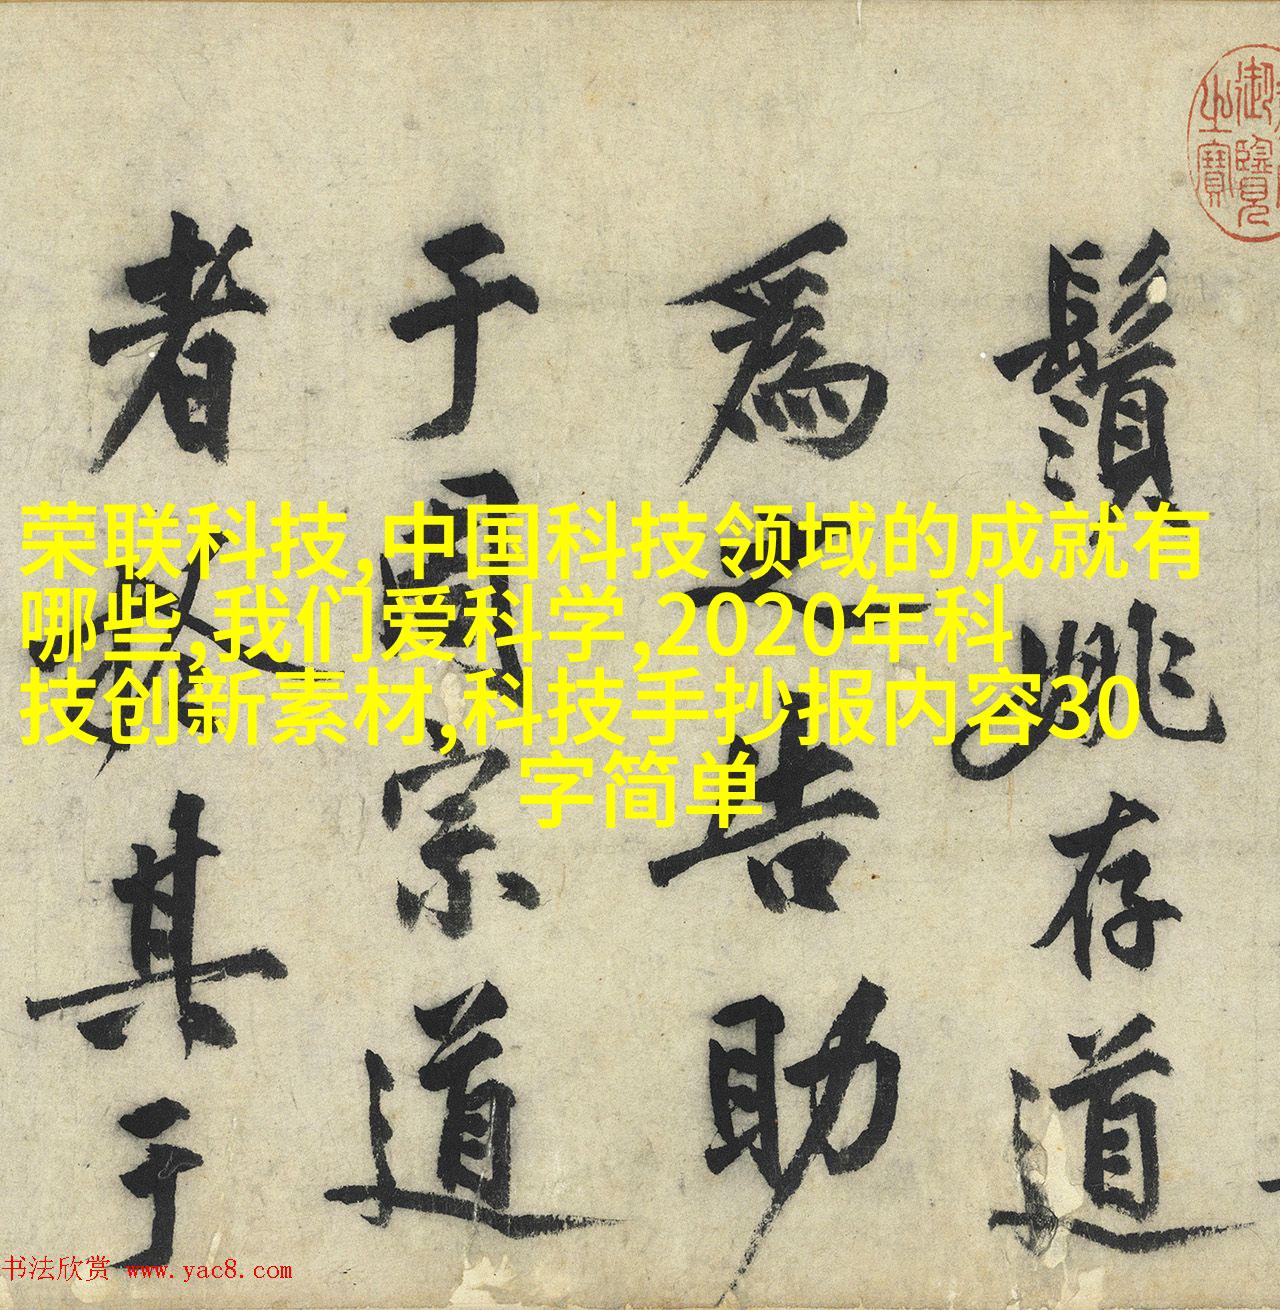 鬚姚存道
爲之告助
于周宗道
者其于
御覽
之寶
荣联科技,中国科技领域的成就有
哪些,我们爱科学,2020年科
技创新素材,科技手抄报内容30
字简单
书法欣赏 www.yac8.com